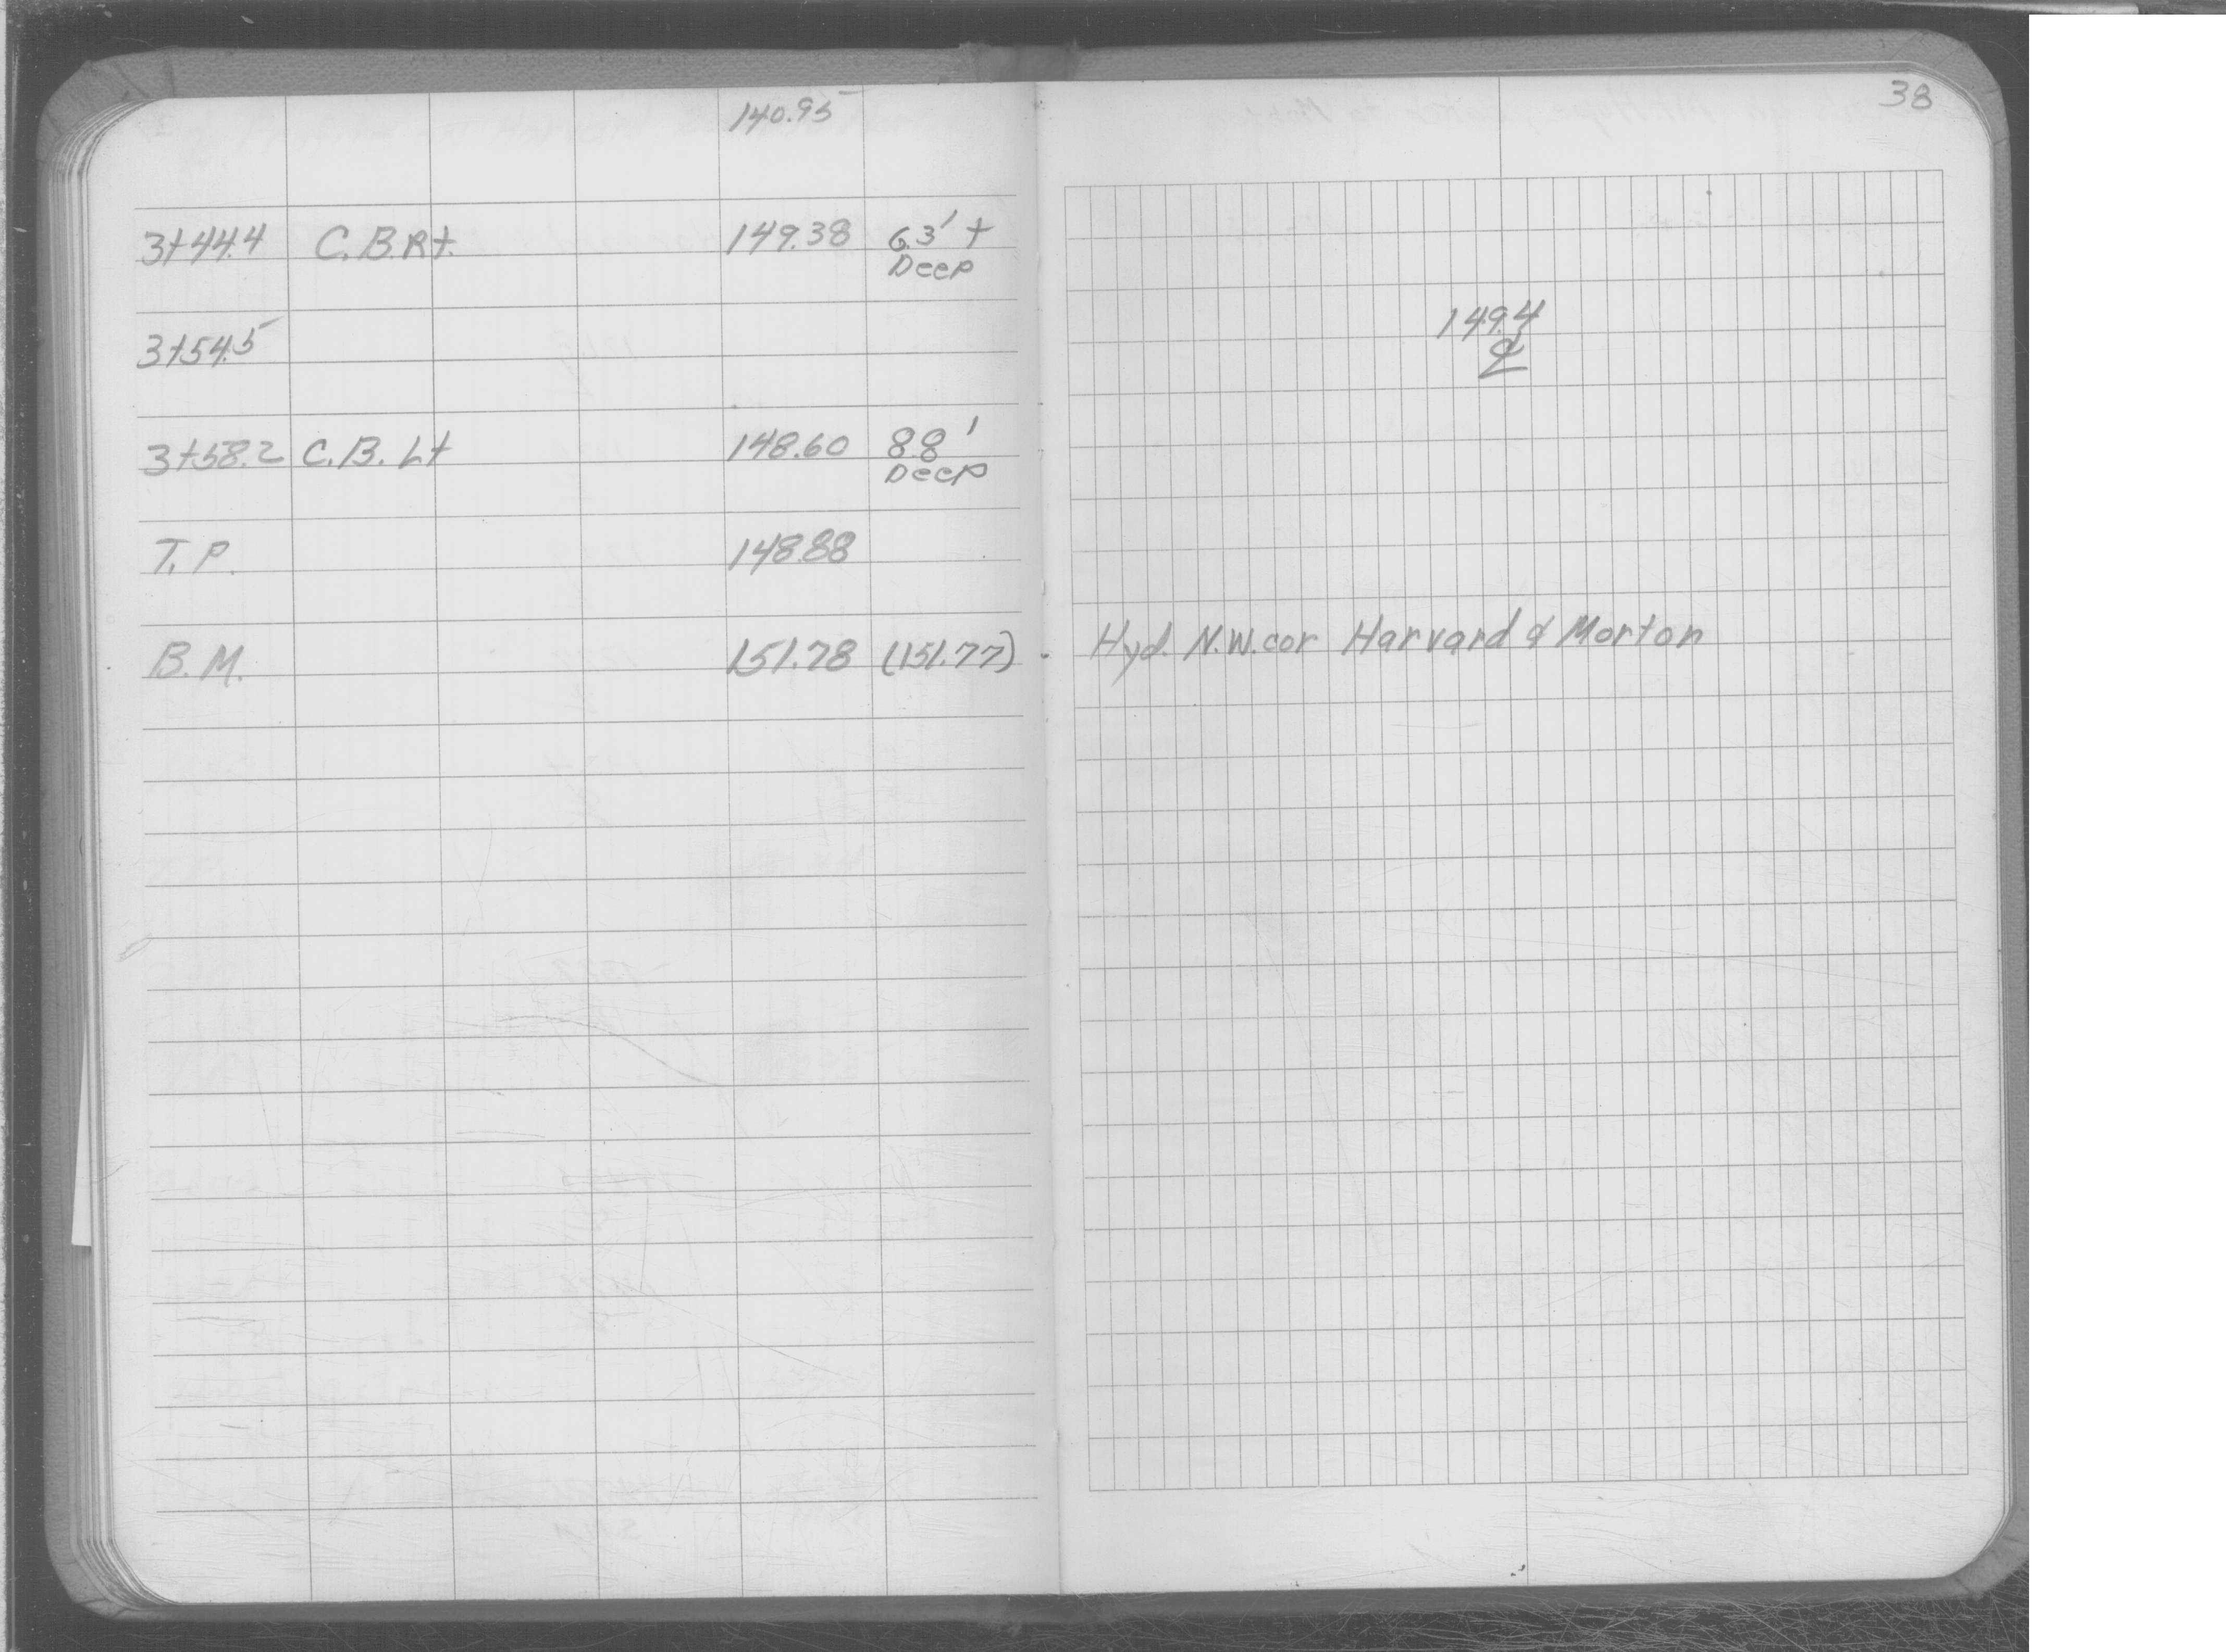 38
140.95
3+44.4 C.B.Rt. 149.38 6.3' +
Deep
3+54.5 149.4
℄
3+58.2 C.B. Lt 148.60 8.8'
Deep
T.P. 148.88
B.M. 151.78 (151.77) - Hyd. N.W. cor Harvard & Morton